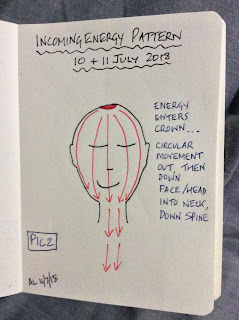 INCOMING ENERGY PATTERN
10 + 11 JULY 2018
ENERGY
ENTERS
CROWN...
CIRCULAR
MOVEMENT
OUT, THEN
DOWN
FACE/HEAD
INTO NECK,
DOWN SPINE
PIC 2
AL 11/7/18